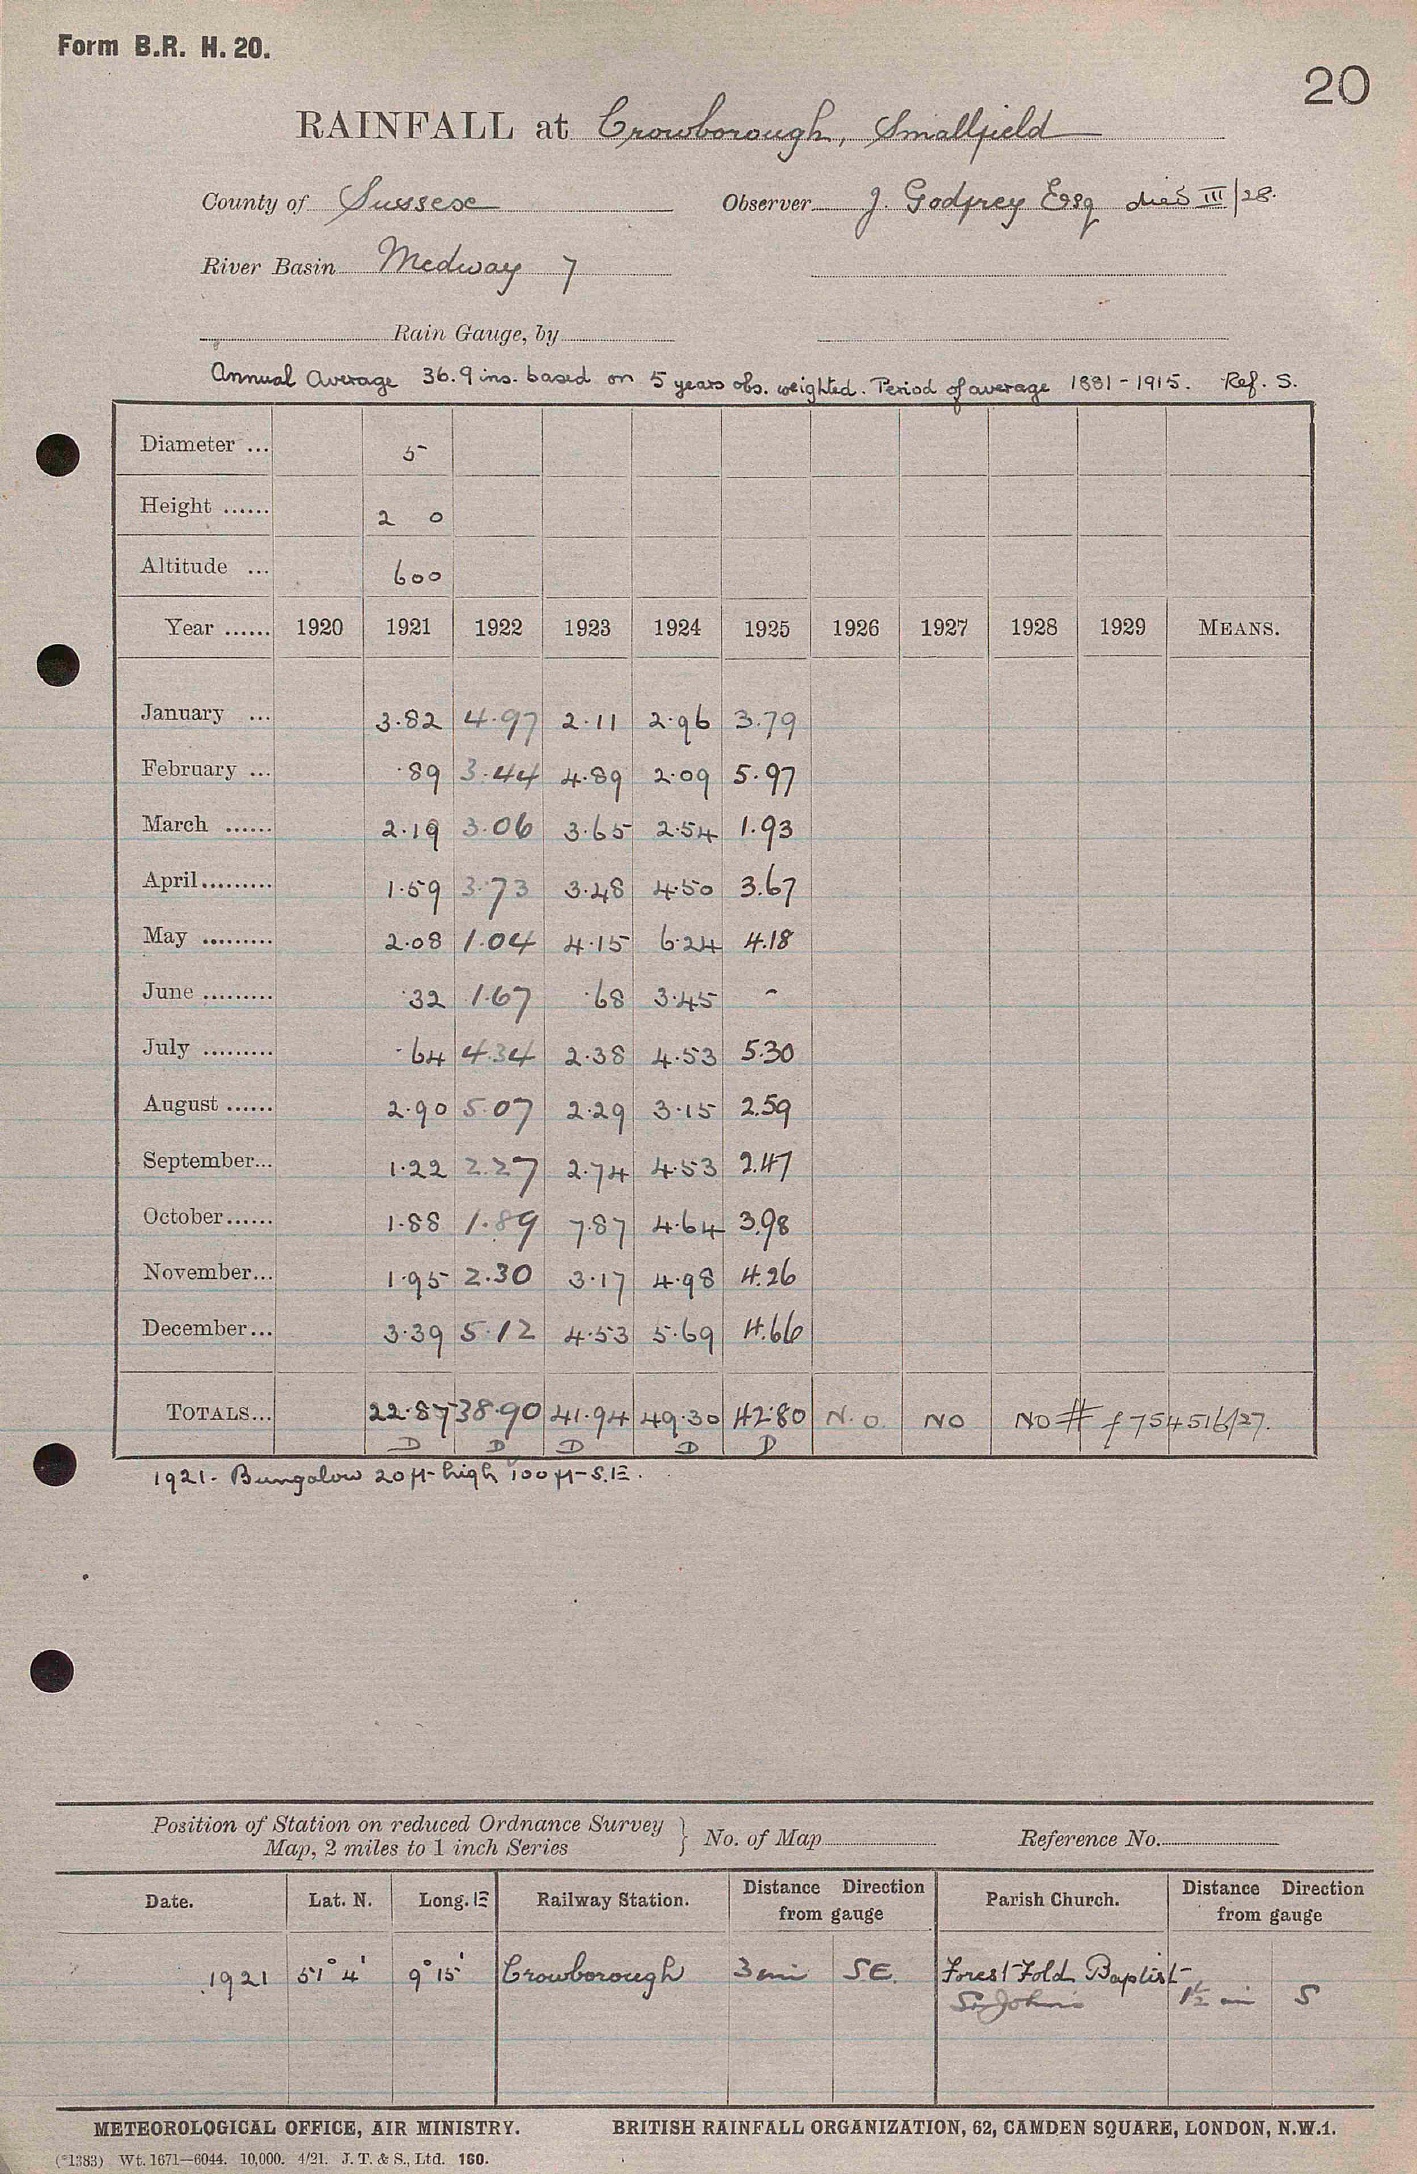 Form B.R. H. 20.
20
RAINFALL at Crowborough, Smallfield
County of Sussex Observer J. Godfrey Esq died III/28.
River Basin Medway 7
Rain Gauge, by
Annual Average 36.9 ins. based on 5 years obs. weighted. Period of average 1881-1915. Ref. S.
Diameter ... 5
Height ...... 2 0
Altitude ... 600
Year ...... 1920 1921 1922 1923 1924 1925 1926 1927 1928 1929 MEANS.
January ... 3.82 4.97 2.11 2.96 3.79
February ... .89 3.44 4.89 2.09 5.97
March ...... 2.19 3.06 3.65 2.54 1.93
April ......... 1.59 3.73 3.48 4.50 3.67
May ......... 2.08 1.04 4.15 6.24 4.18
June ......... .32 1.67 .68 3.45 -
July ......... .64 4.34 2.38 4.53 5.30
August ...... 2.90 5.07 2.29 3.15 2.59
September... 1.22 2.27 2.74 4.53 2.47
October...... 1.88 1.89 7.87 4.64 3.98
November... 1.95 2.30 3.17 4.98 4.26
December... 3.39 5.12 4.53 5.69 4.66
TOTALS... 22.87 38.90 41.94 49.30 42.80 N.O. NO NO # f 754516/27.
D D D D D
1921. Bungalow 20 ft high 100 ft S.E.
Position of Station on reduced Ordnance Survey
Map, 2 miles to 1 inch Series } No. of Map Reference No.
Date. Lat. N. Long. E Railway Station. Distance Direction from gauge Parish Church. Distance Direction from gauge
1921 51° 4' 9° 15' Crowborough 3 mi SE. Forest Fold Baptist
St. John's 1½ mi S
METEOROLOGICAL OFFICE, AIR MINISTRY. BRITISH RAINFALL ORGANIZATION, 62, CAMDEN SQUARE, LONDON, N.W.1.
(*1383) Wt. 1671—6044. 10,000. 4/21. J. T. & S., Ltd. 160.